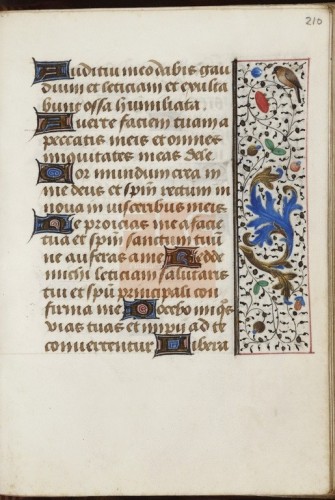 210
Auditui meo dabis gau
dium et leticiam et exulta
bunt ossa humiliata
Auerte faciem tuam a
peccatis meis et omnes
iniquitates meas dele
Cor mundum crea in
me deus et spm rectum in
noua in visceribus meis
Ne proicias me a facie
tua et spm sanctum tuu
ne auferas a me Redde
michi leticiam salutaris
tui et spu principali con
firma me Docebo iniqos
vias tuas et impii ad te
conuertentur Libera